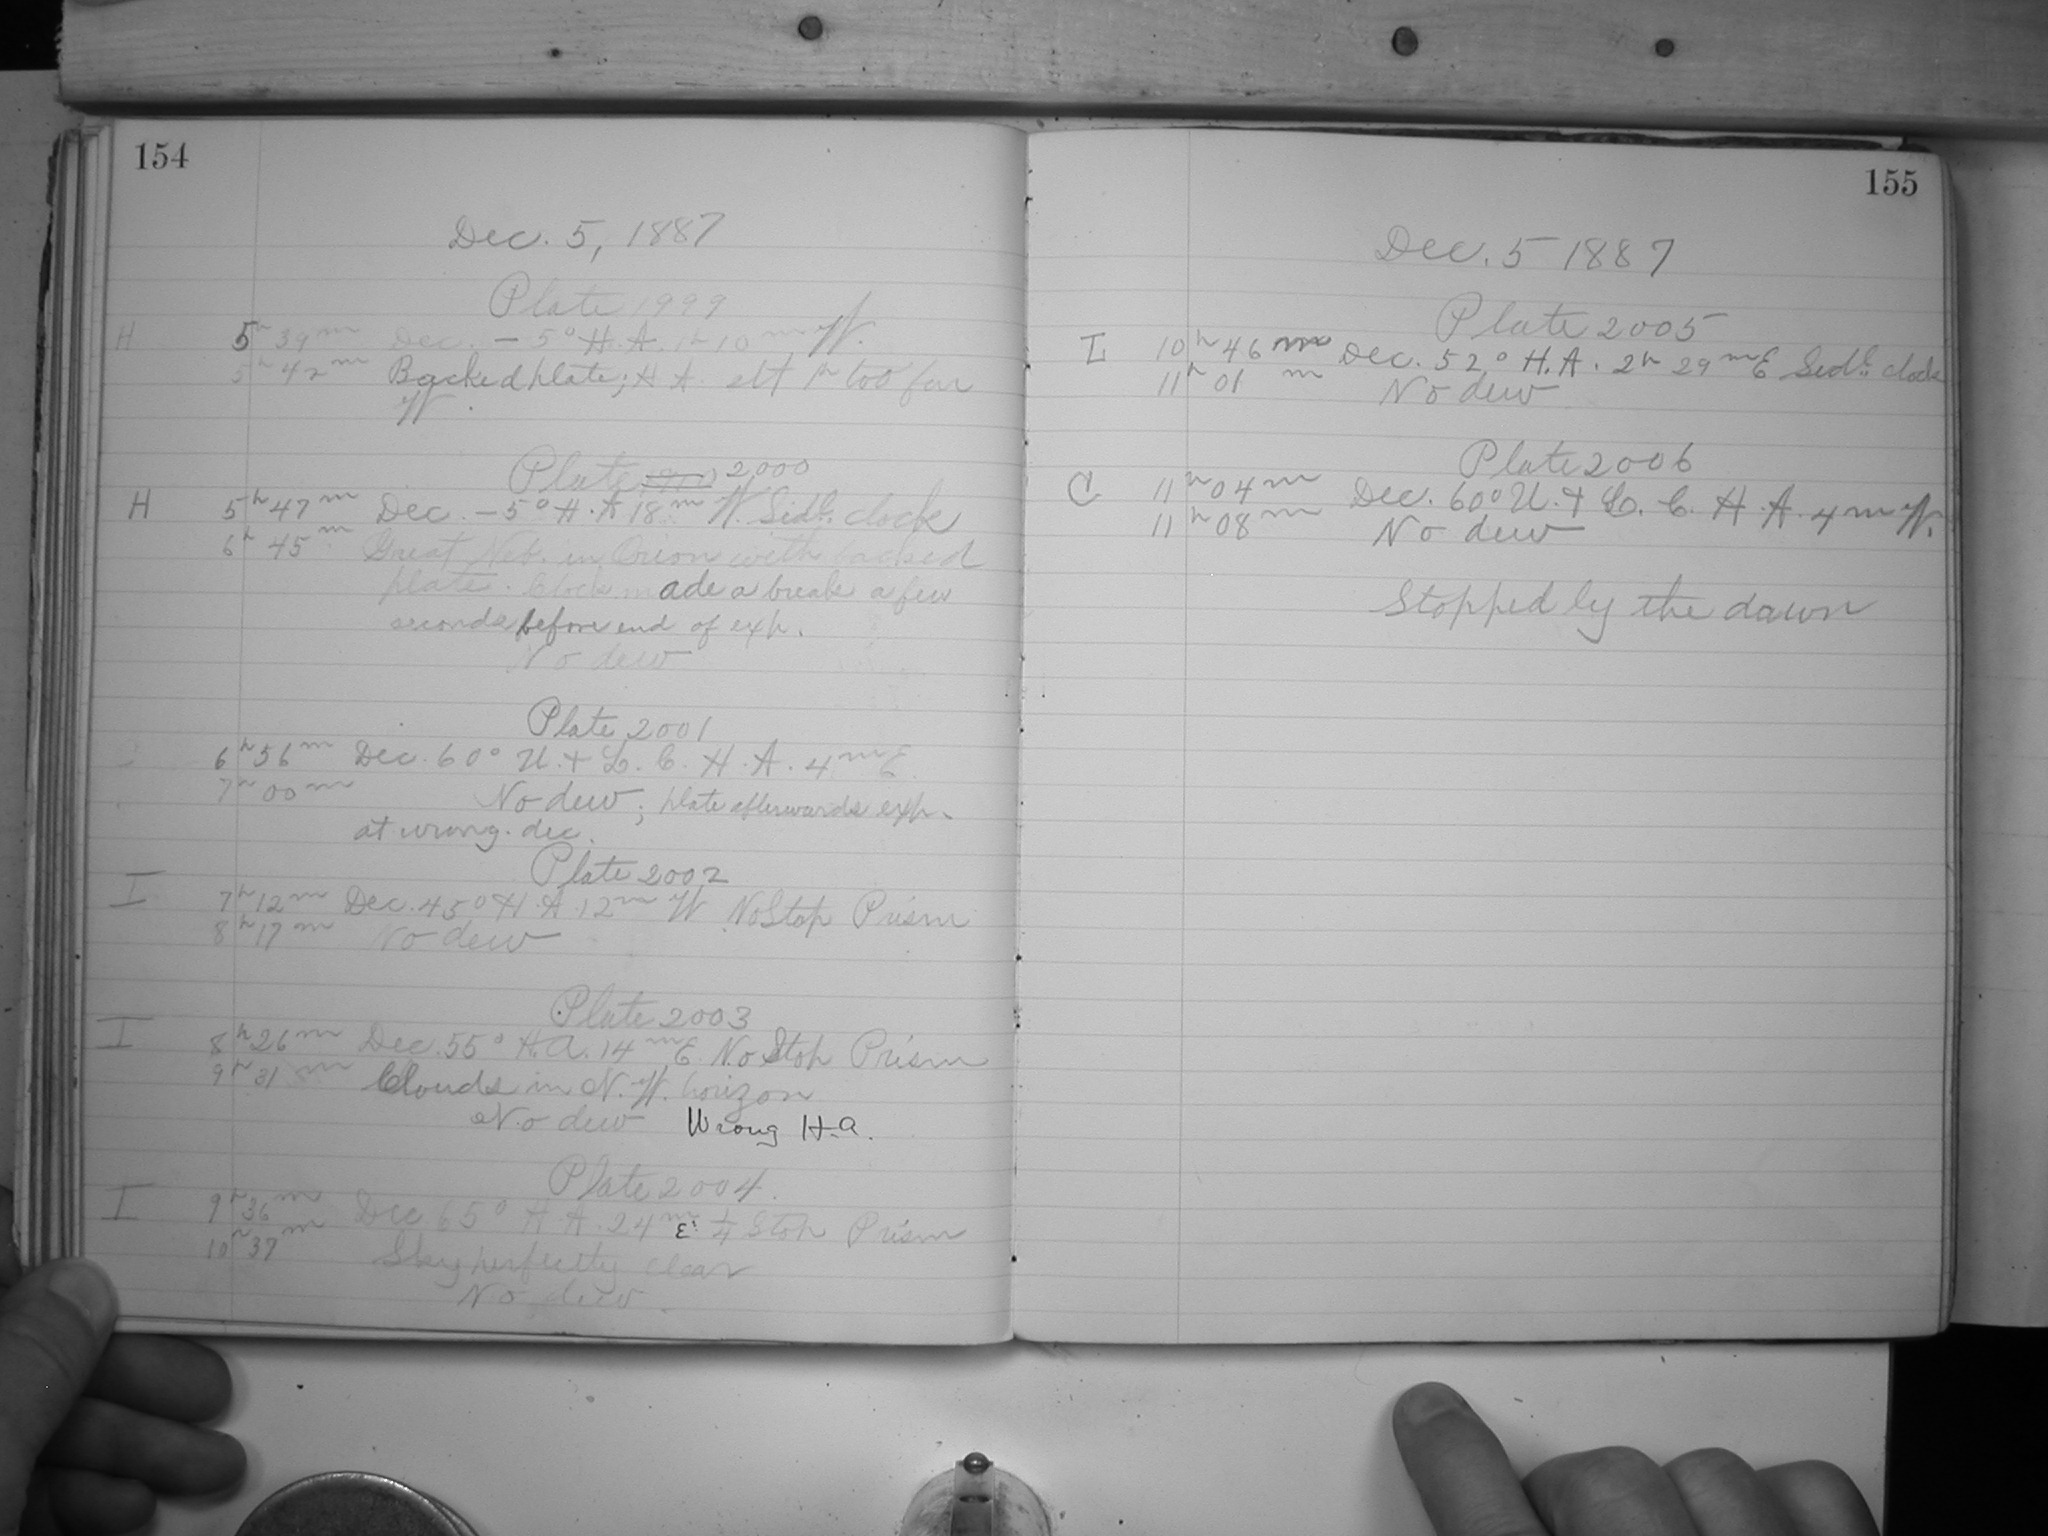 154
Dec. 5, 1887
Plate 1999
H 5h 39m Dec. - 5° H. A. 1h 10m W.
5h 42m Backed plate; H A. set 1h too far
W.
Plate 2000
H 5h 47m Dec. - 5° H. A 18m W. Sidl. clock
6h 45m Great Neb. in Orion with backed
plate. Clock made a break a few
seconds before end of exp.
No dew
Plate 2001
6h 56m Dec. 60° U. + L. C. H. A. 4m E
7h 00m No dew; plate afterwards exp.
at wrong dec.
Plate 2002
I 7h 12m Dec. 45° H. A 12m W No Stop Prism
8h 17m No dew
Plate 2003
I 8h 26m Dec. 55° H. A. 14m E No Stop Prism
9h 31m Clouds in N. W. horizon
No dew Wrong H. a.
Plate 2004.
I 9h 36m Dec 65° H A. 24m E. 1/4 Stop Prism
10h 37m Sky perfectly clear
No dew.
155
Dec. 5 1887
Plate 2005
I 10h 46m Dec. 52° H. A. 2h 29m E Sidl. clock
11h 01m No dew
Plate 2006
C 11h 04m Dec. 60° U. + L. C. H. A. 4m W.
11h 08m No dew
Stopped by the dawn